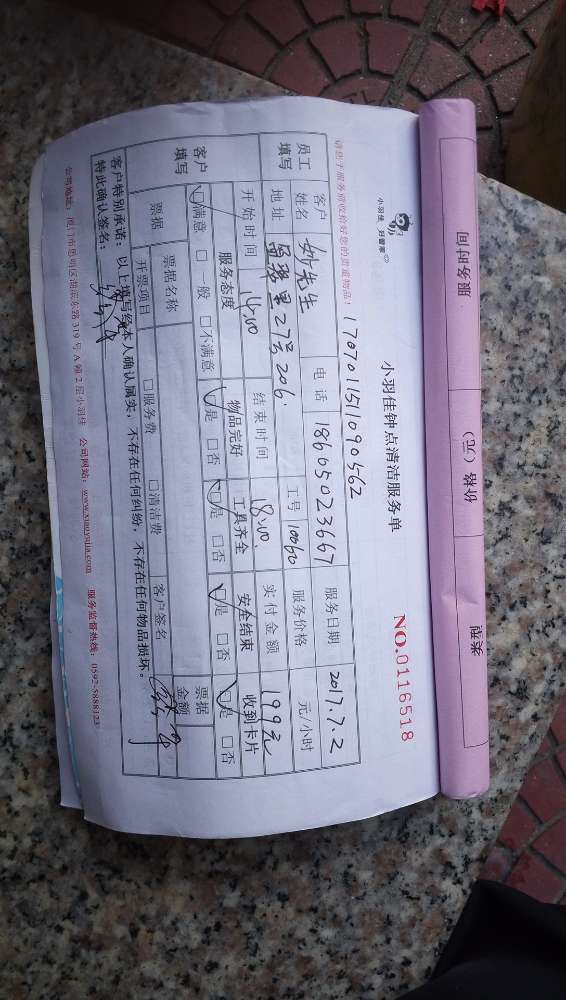 服务时间 价格（元） 类别
小羽佳 好管家
小羽佳钟点清洁服务单
NO.0116518
请您于服务前收拾好您的贵重物品！
1707011511090562
员工填写 客户姓名 先生 电话 18605023667 服务日期 2017.7.2
地址 27号206. 工号 10060 服务价格 元/小时
开始时间 14:00 结束时间 18:00. 实付金额 199元
客户填写 服务态度 物品完好 工具齐全 安全结束 收到卡片
☑满意 □一般 □不满意 ☑是 □否 ☑是 □否 ☑是 □否 ☑是 □否
票据 票据名称 票据金额
开票项目 □服务费 □清洁费 客户签名
客户特别承诺：以上填写经本人确认属实，不存在任何纠纷，不存在任何物品损坏。
特此确认签名：
公司地址：厦门市思明区湖滨东路319号A幢2层小羽佳 公司网站：www.xiaoyujia.com 服务监督热线：0592-5888123